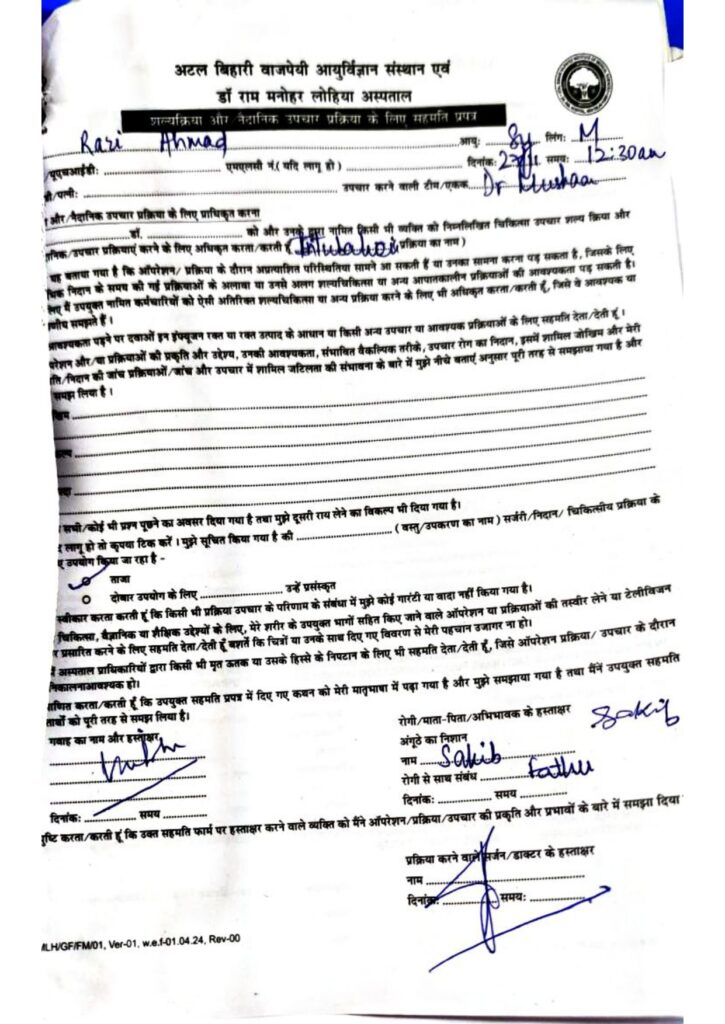 अटल बिहारी वाजपेयी आयुर्विज्ञान संस्थान एवं
डॉ राम मनोहर लोहिया अस्पताल
शल्यक्रिया और नैदानिक उपचार प्रक्रिया के लिए सहमति प्रपत्र
Razi Ahmad आयुः 8y लिंगः M
यूएचआईडीः एमएलसी नं.( यदि लागू हो ) दिनांकः समयः 12:30am
पत्नीः उपचार करने वाली टीम/एकक Dr
और/नैदानिक उपचार प्रक्रिया के लिए प्राधिकृत करना
डॉ. को और उनके द्वारा नामित किसी भी व्यक्ति को निम्नलिखित चिकित्सा उपचार शल्य क्रिया और
उपचार प्रक्रियाएं करने के लिए अधिकृत करता/करती हूँ ( प्रक्रिया का नाम )
यह बताया गया है कि ऑपरेशन/ प्रक्रिया के दौरान अप्रत्याशित परिस्थितिया सामने आ सकती हैं या उनका सामना करना पड़ सकता है, जिसके लिए
निदान के समय की गई प्रक्रियाओं के अलावा या उनसे अलग शल्यचिकित्सा या अन्य आपातकालीन प्रक्रियाओं की आवश्यकता पड़ सकती है।
मैं उपयुक्त नामित कर्मचारियों को ऐसी अतिरिक्त शल्यचिकित्सा या अन्य प्रक्रिया करने के लिए भी अधिकृत करता/करती हूँ, जिसे वे आवश्यक या
समझते हैं ।
पड़ने पर दवाओं इन इंफ्यूजन रक्त या रक्त उत्पाद के आधान या किसी अन्य उपचार या आवश्यक प्रक्रियाओं के लिए सहमति देता/देती हूँ ।
और/या प्रक्रियाओं की प्रकृति और उद्देश्य, उनकी आवश्यकता, संभावित वैकल्पिक तरीके, उपचार रोग का निदान, इसमें शामिल जोखिम और मेरी
निदान की जांच प्रक्रियाओं/जांच और उपचार में शामिल जटिलता की संभावना के बारे में मुझे नीचे बताएं अनुसार पूरी तरह से समझाया गया है और
समझ लिया है ।
सभी/कोई भी प्रश्न पूछने का अवसर दिया गया है तथा मुझे दूसरी राय लेने का विकल्प भी दिया गया है।
लागू हो तो कृपया टिक करें । मुझे सूचित किया गया है की ( वस्तु/उपकरण का नाम ) सर्जरी/निदान/ चिकित्सीय प्रक्रिया के
उपयोग किया जा रहा है -
ताजा
दोबार उपयोग के लिए उन्हें प्रसंस्कृत
करता करती हूं कि किसी भी प्रक्रिया उपचार के परिणाम के संबंध में मुझे कोई गारंटी या वादा नहीं किया गया है।
चिकित्सा, वैज्ञानिक या शैक्षिक उद्देश्यों के लिए, मेरे शरीर के उपयुक्त भागों सहित किए जाने वाले ऑपरेशन या प्रक्रियाओं की तस्वीर लेने या टेलीविजन
प्रसारित करने के लिए सहमति देता/देती हूँ बशर्ते कि चित्रों या उनके साथ दिए गए विवरण से मेरी पहचान उजागर ना हो।
अस्पताल प्राधिकारियों द्वारा किसी भी मृत ऊतक या उसके हिस्से के निपटान के लिए भी सहमति देता/देती हूँ, जिसे ऑपरेशन प्रक्रिया/ उपचार के दौरान
निकालनाआवश्यक हो।
करता/करती हूँ कि उपयुक्त सहमति प्रपत्र में दिए गए कथन को मेरी मातृभाषा में पढ़ा गया है और मुझे समझाया गया है तथा मैंने उपयुक्त सहमति
को पूरी तरह से समझ लिया है।
गवाह का नाम और हस्ताक्षर
रोगी/माता-पिता/अभिभावक के हस्ताक्षर Sakib
अंगूठे का निशान
नाम Sakib
रोगी से साथ संबंध Father
दिनांकः समय
दिनांकः समय
करता/करती हूं कि उक्त सहमति फार्म पर हस्ताक्षर करने वाले व्यक्ति को मैंने ऑपरेशन/प्रक्रिया/उपचार की प्रकृति और प्रभावों के बारे में समझा दिया
प्रक्रिया करने वाले सर्जन/डाक्टर के हस्ताक्षर
नाम
दिनांकः समयः
MLH/GF/FM/01, Ver-01, w.e.f-01.04.24, Rev-00